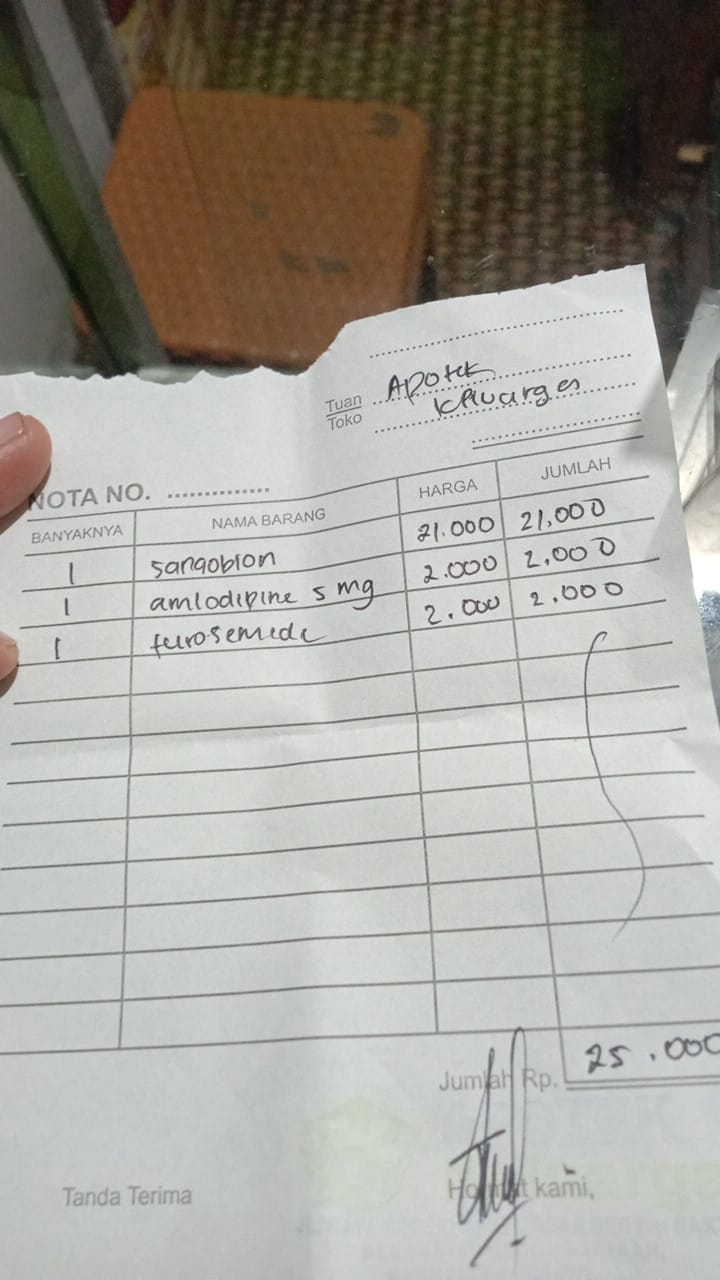 Tuan Apotek
Toko Keluarga
NOTA NO. ..............
BANYAKNYA NAMA BARANG HARGA JUMLAH
1 sangobion 21.000 21,000
1 amlodipine 5 mg 2.000 2,000
1 furosemide 2.000 2.000
Jumlah Rp. 25.000
Tanda Terima Hormat kami,